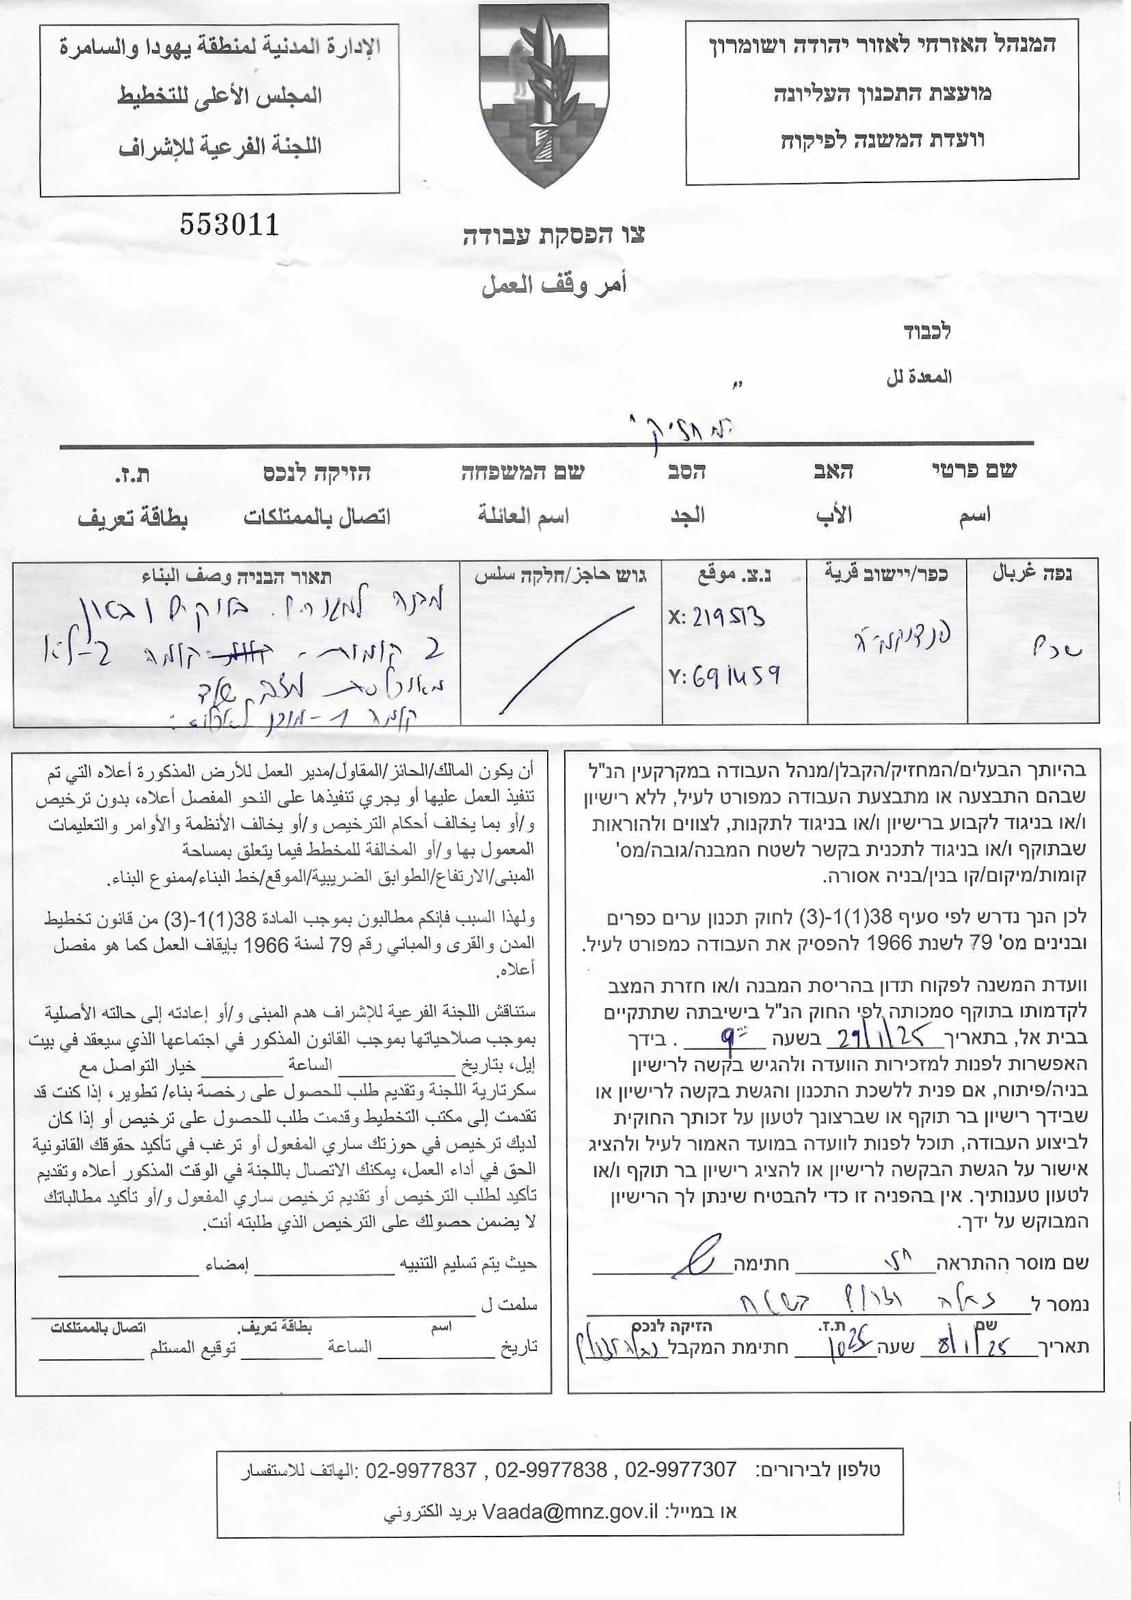 المנהל האזרחי לאזור יהודה ושומרון
מועצת התכנון העליונה
וועדת המשנה לפיקוח
الإدارة المدنية لمنطقة يهودا والسامرة
المجلس الأعلى للتخطيط
اللجنة الفرعية للإشراف
553011
צו הפסקת עבודה
أمر وقف العمل
לכבוד
المعدة لل
"
המחזיק
שם פרטי האב הסב שם המשפחה הזיקה לנכס ת.ז.
اسم الأب الجد اسم العائلة اتصال بالممتلكات بطاقة تعريف
נפה غربال כפר/יישוב قرية נ.צ. موقع גוש حاجز/חלקה سلس תאור הבניה وصف البناء
שכם
פונדוקיה
X: 219513
Y: 691459
מבנה למגורים בלוקים ובטון
2 קומות - קומה 2-לא
מאוכלסת מצב שלד
קומה 1-מוכן
בהיותך הבעלים/המחזיק/הקבלן/מנהל העבודה במקרקעין הנ"ל
שבהם התבצעה או מתבצעת העבודה כמפורט לעיל, ללא רישיון
ו/או בניגוד לקבוע ברישיון ו/או בניגוד לתקנות, לצווים ולהוראות
שבתוקף ו/או בניגוד לתכנית בקשר לשטח המבנה/גובה/מס'
קומות/מיקום/קו בנין/בניה אסורה.
לכן הנך נדרש לפי סעיף 38(1)1-(3) לחוק תכנון ערים כפרים
ובנינים מס' 79 לשנת 1966 להפסיק את העבודה כמפורט לעיל.
וועדת המשנה לפקוח תדון בהריסת המבנה ו/או חזרת המצב
לקדמותו בתוקף סמכותה לפי החוק הנ"ל בישיבתה שתתקיים
בבית אל, בתאריך 29/1/25 בשעה 9:00 . בידך
האפשרות לפנות למזכירות הוועדה ולהגיש בקשה לרישיון
בניה/פיתוח, אם פנית ללשכת התכנון והגשת בקשה לרישיון או
שבידך רישיון בר תוקף או שברצונך לטעון על זכותך החוקית
לביצוע העבודה, תוכל לפנות לוועדה במועד האמור לעיל ולהציג
אישור על הגשת הבקשה לרישיון או להציג רישיון בר תוקף ו/או
לטעון טענותיך. אין בהפניה זו כדי להבטיח שינתן לך הרישיון
המבוקש על ידך.
שם מוסר ההתראה חתימה
נמסר ל
שם ת.ז. הזיקה לנכס
תאריך 8/1/25 שעה 1025 חתימת המקבל
أن يكون المالك/الحائز/المقاول/مدير العمل للأرض المذكورة أعلاه التي تم
تنفيذ العمل عليها أو يجري تنفيذها على النحو المفصل أعلاه، بدون ترخيص
و/أو بما يخالف أحكام الترخيص و/أو يخالف الأنظمة والأوامر والتعليمات
المعمول بها و/أو المخالفة للمخطط فيما يتعلق بمساحة
المبنى/الارتفاع/الطوابق الضريبية/الموقع/خط البناء/ممنوع البناء.
ولهذا السبب فإنكم مطالبون بموجب المادة 38(1)1-(3) من قانون تخطيط
المدن والقرى والمباني رقم 79 لسنة 1966 بإيقاف العمل كما هو مفصل
أعلاه.
ستناقش اللجنة الفرعية للإشراف هدم المبنى و/أو إعادته إلى حالته الأصلية
بموجب صلاحياتها بموجب القانون المذكور في اجتماعها الذي سيعقد في بيت
إيل، بتاريخ الساعة خيار التواصل مع
سكرتارية اللجنة وتقديم طلب للحصول على رخصة بناء/ تطوير، إذا كنت قد
تقدمت إلى مكتب التخطيط وقدمت طلب للحصول على ترخيص أو إذا كان
لديك ترخيص في حوزتك ساري المفعول أو ترغب في تأكيد حقوقك القانونية
الحق في أداء العمل، يمكنك الاتصال باللجنة في الوقت المذكور أعلاه وتقديم
تأكيد لطلب الترخيص أو تقديم ترخيص ساري المفعول و/أو تأكيد مطالباتك
لا يضمن حصولك على الترخيص الذي طلبته أنت.
حيث يتم تسليم التنبيه إمضاء
سلمت ل
اسم بطاقة تعريف. اتصال بالممتلكات
تاريخ الساعة توقيع المستلم
טלפון לבירורים: 02-9977307 , 02-9977838 , 02-9977837 :الهاتف للاستفسار
או במייל: Vaada@mnz.gov.il بريد الكتروني